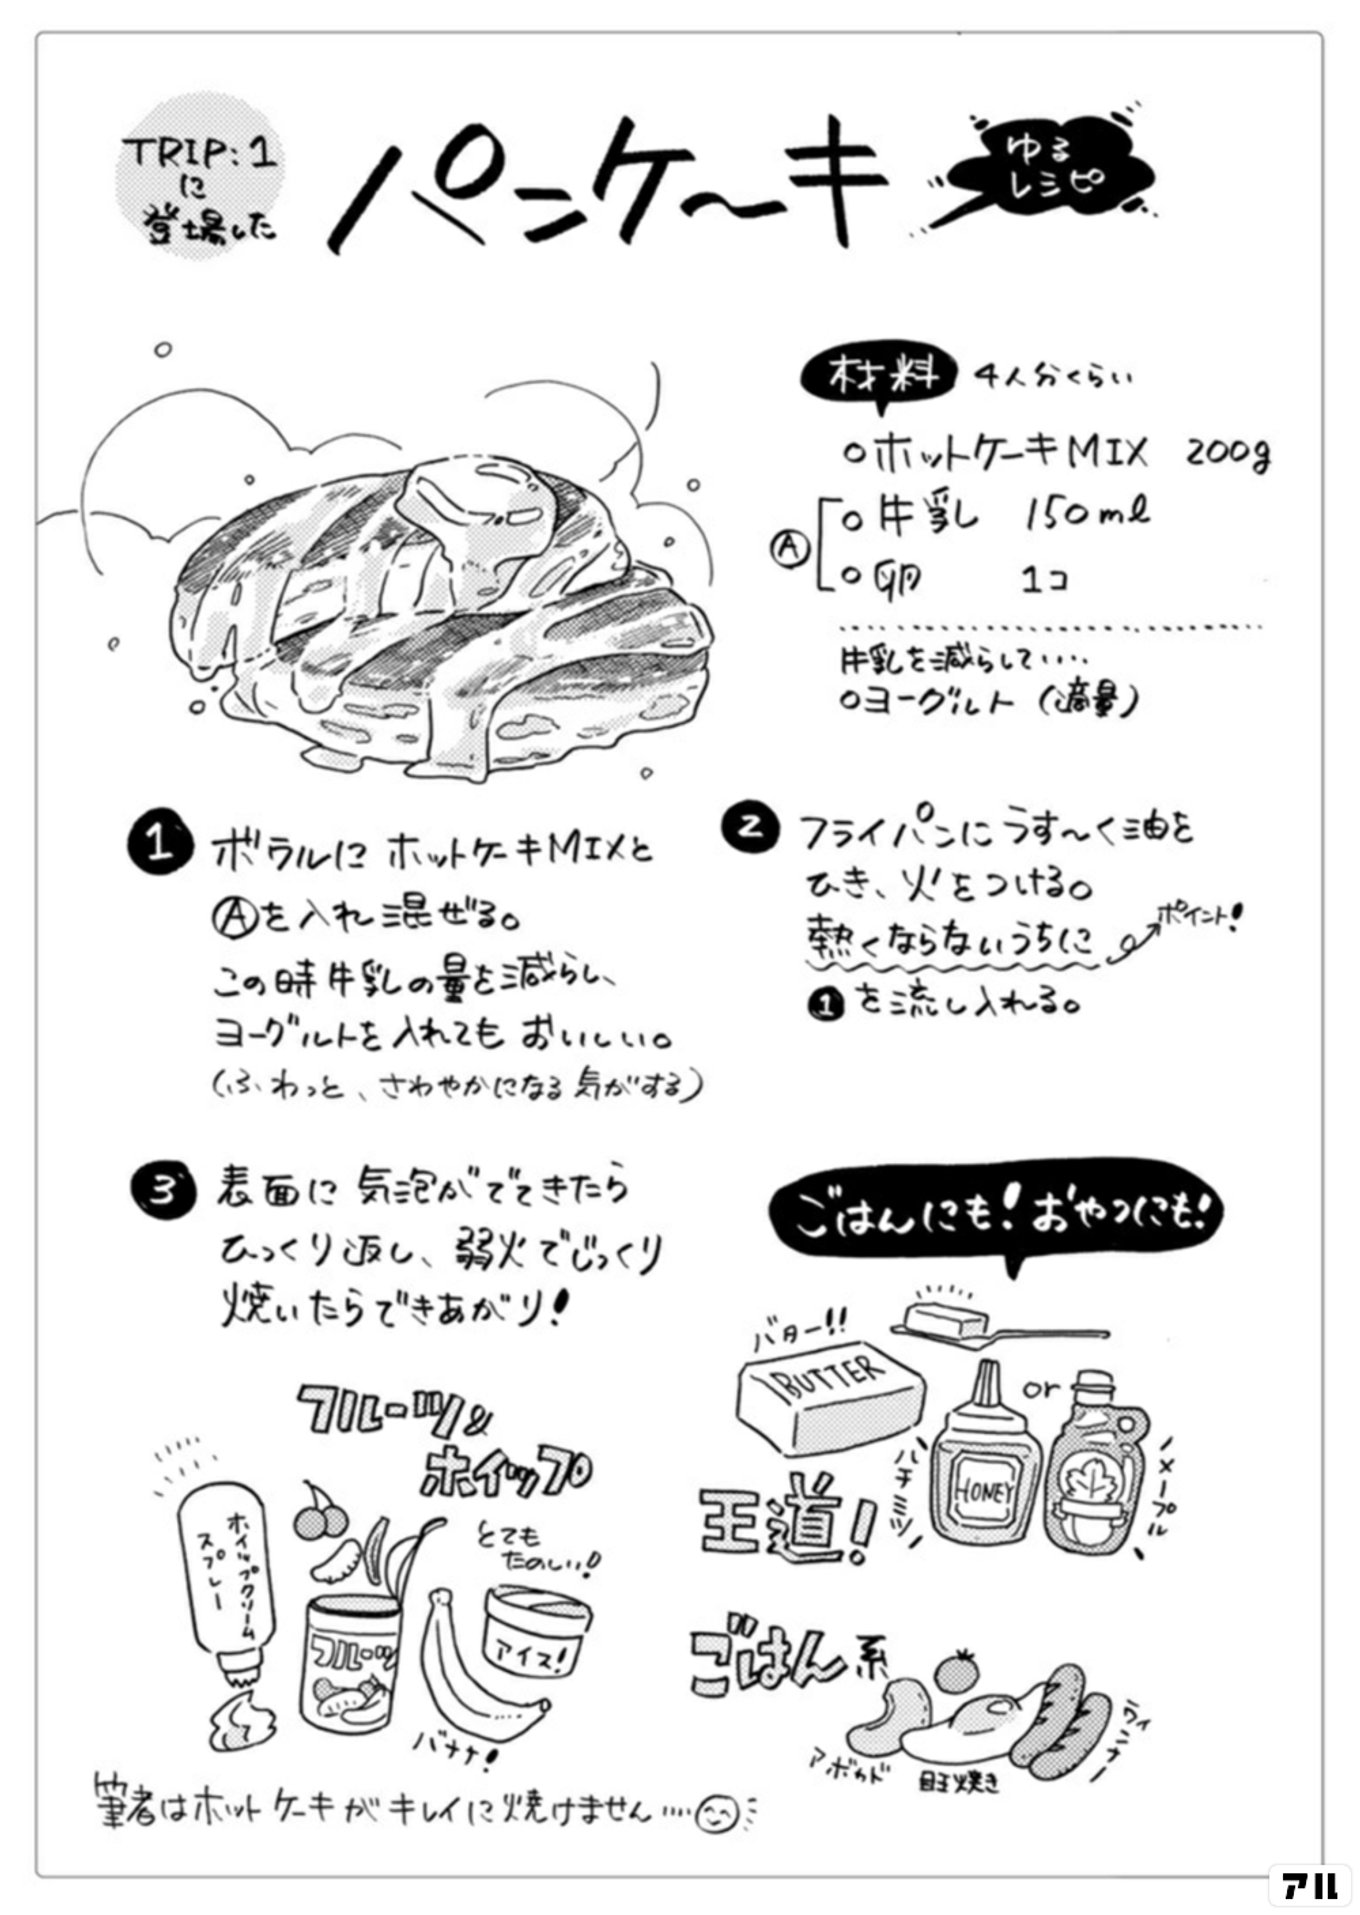 TRIP:1
に
登場した
パンケ〜キ
ゆる
レシピ
材料 4人分くらい
○ホットケーキMIX 200g
Ⓐ
○牛乳 150ml
○卵 1コ
牛乳を減らして・・・・
○ヨーグルト (適量)
1 ボウルにホットケーキMIXと
Ⓐを入れ混ぜる。
この時牛乳の量を減らし、
ヨーグルトを入れてもおいしい。
(ふわっと、さわやかになる気がする)
2 フライパンにうす〜く油を
ひき、火をつける。
熱くならないうちに
ポイント!
1を流し入れる。
3 表面に気泡がでてきたら
ひっくり返し、弱火でじっくり
焼いたらできあがり!
ごはんにも!おやつにも!
バター!!
BUTTER
or
HONEY
ハチミツ
メープル
王道!
フルーツ&
ホイップ
ホイップクリーム
スプレー
とても
たのしい!
フルーツ
アイス!
バナナ!
ごはん系
アボカド
目玉焼き
ウインナー
筆者はホットケーキがキレイに焼けません・・・・
アル